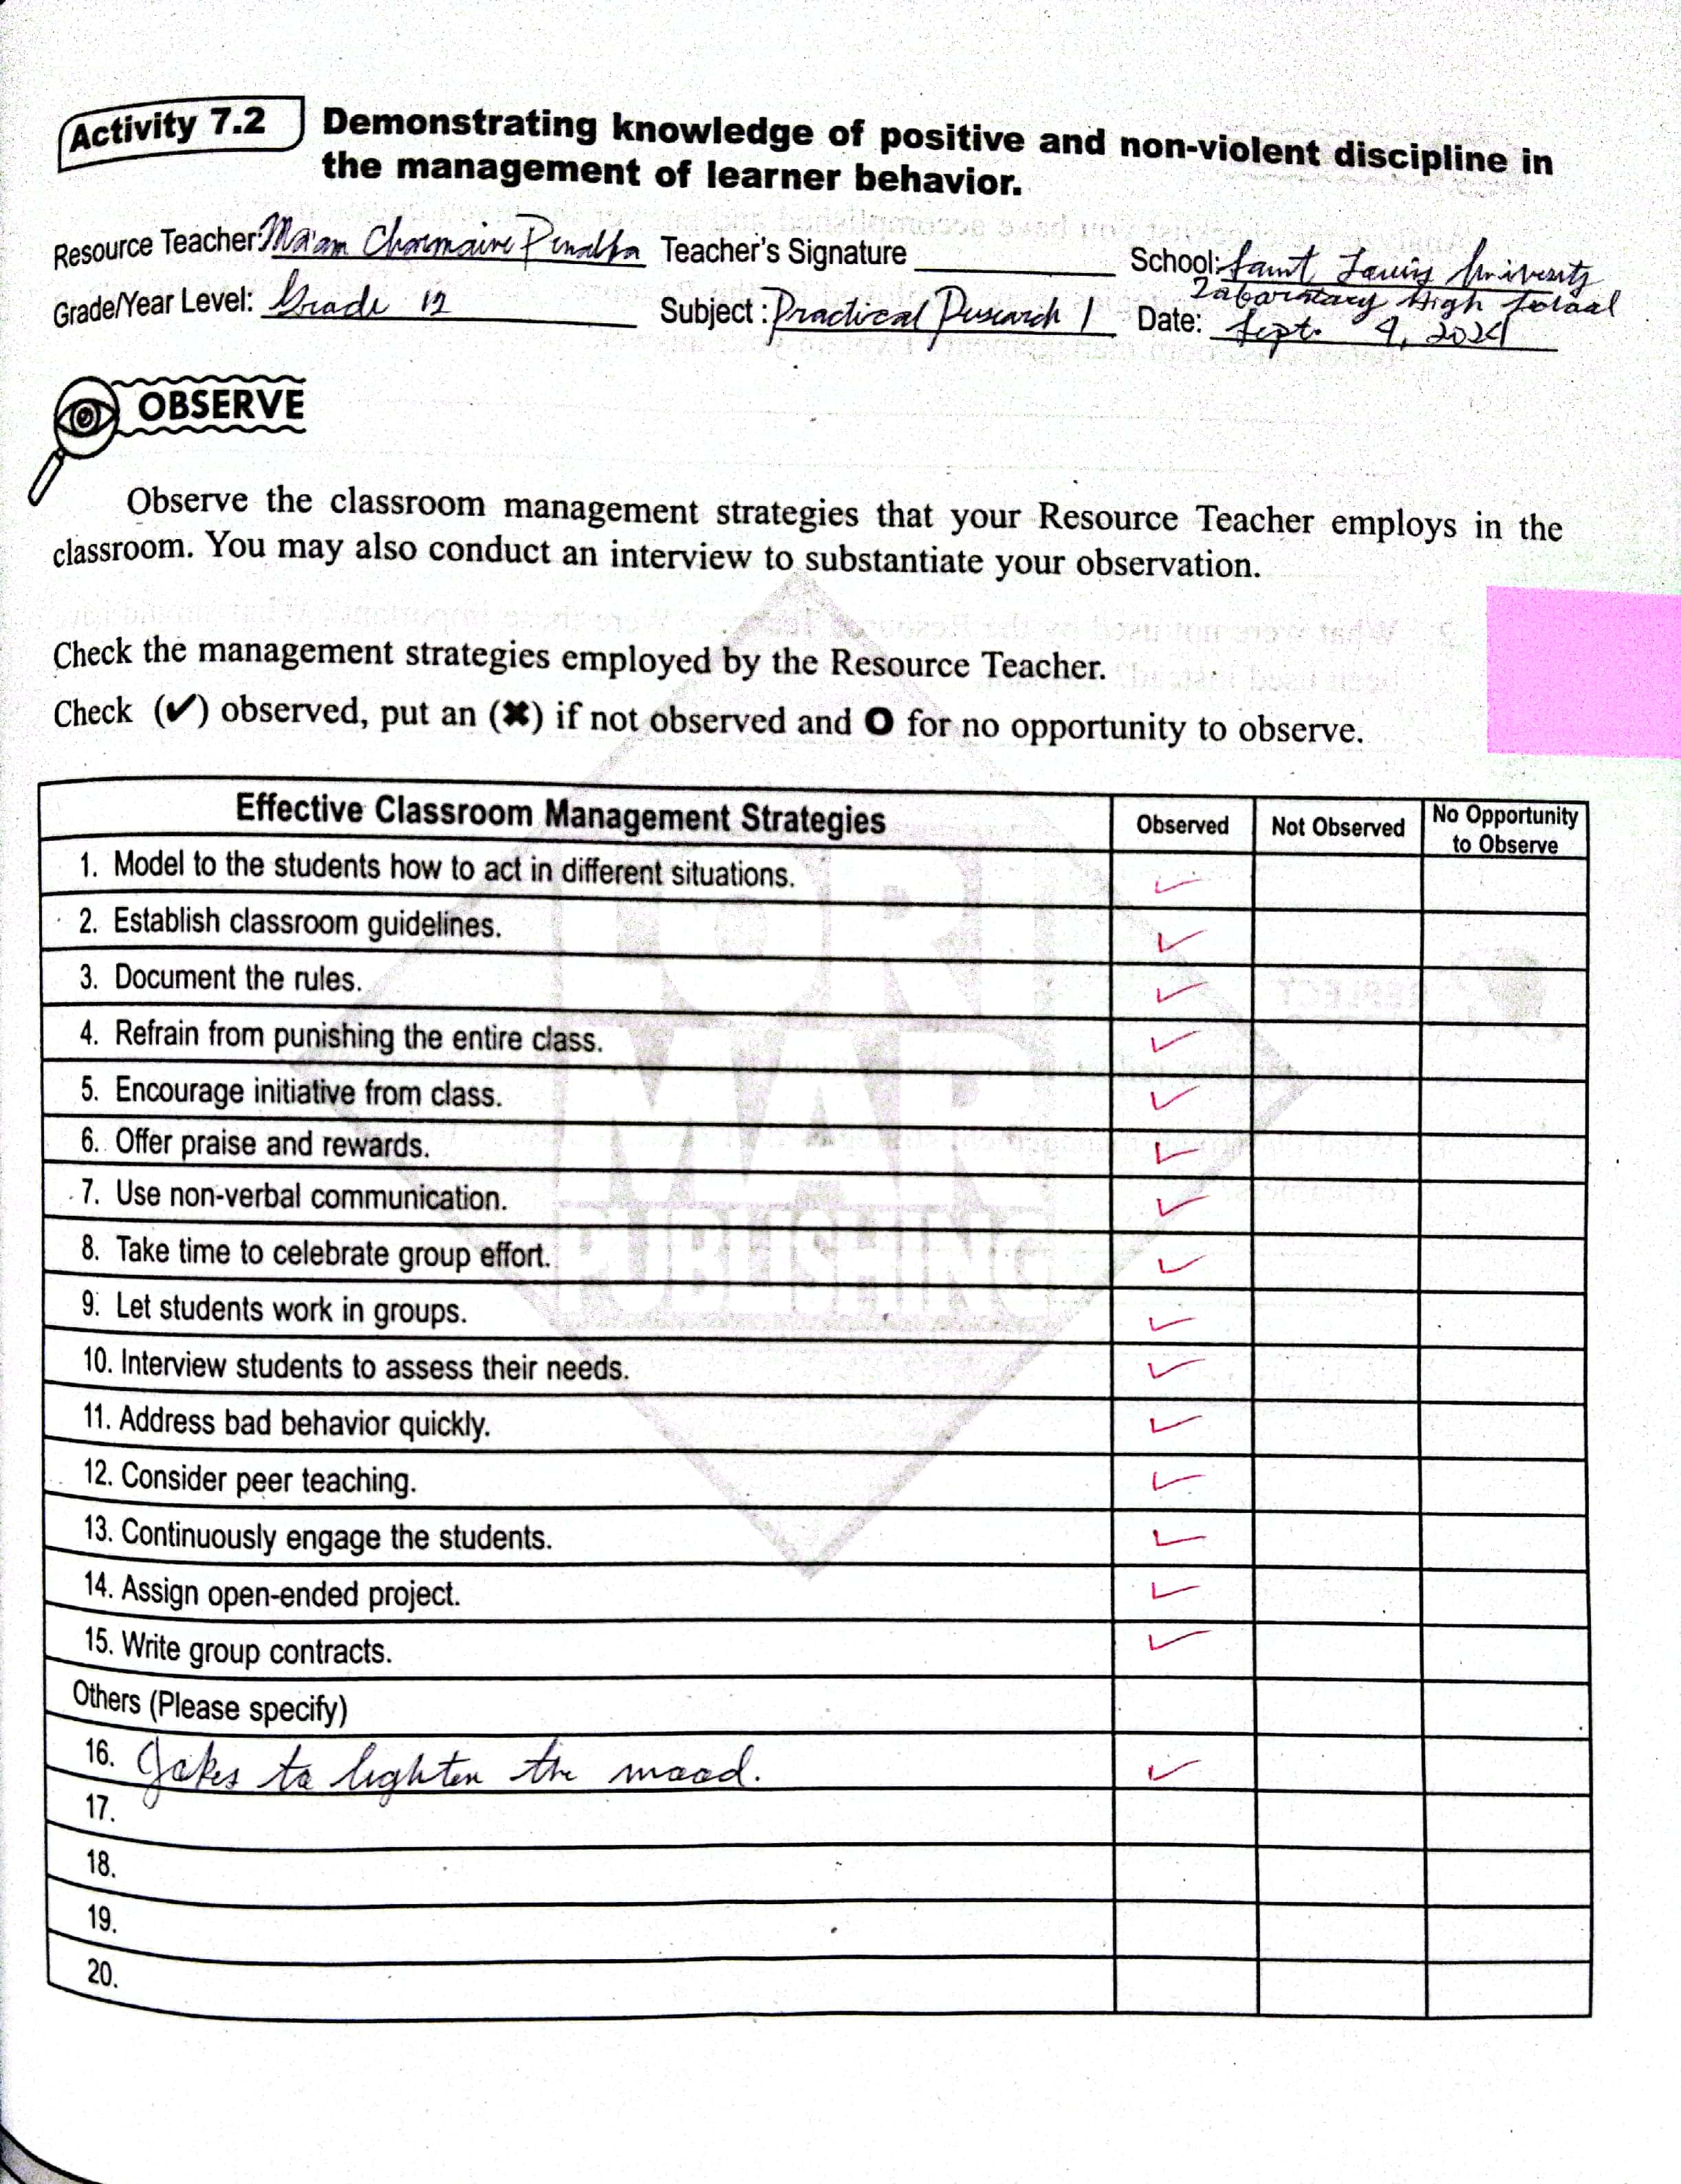 Activity 7.2
Demonstrating knowledge of positive and non-violent discipline in
the management of learner behavior.
Resource Teacher: Ma'am Charmaine Teacher's Signature School: Saint Louis University
Laboratary High School
Grade/Year Level: Grade 12 Subject : Practical Research 1 Date: Sept. 9, 2024
OBSERVE
Observe the classroom management strategies that your Resource Teacher employs in the
classroom. You may also conduct an interview to substantiate your observation.
Check the management strategies employed by the Resource Teacher.
Check (✔) observed, put an (✖) if not observed and O for no opportunity to observe.
Effective Classroom Management Strategies Observed Not Observed No Opportunity
to Observe
1. Model to the students how to act in different situations. ✓
2. Establish classroom guidelines. ✓
3. Document the rules. ✓
4. Refrain from punishing the entire class. ✓
5. Encourage initiative from class. ✓
6. Offer praise and rewards. ✓
7. Use non-verbal communication. ✓
8. Take time to celebrate group effort. ✓
9. Let students work in groups. ✓
10. Interview students to assess their needs. ✓
11. Address bad behavior quickly. ✓
12. Consider peer teaching. ✓
13. Continuously engage the students. ✓
14. Assign open-ended project. ✓
15. Write group contracts. ✓
Others (Please specify)
16. Jokes to lighten the mood. ✓
17.
18.
19.
20.
LORI
MAR
PUBLISHING